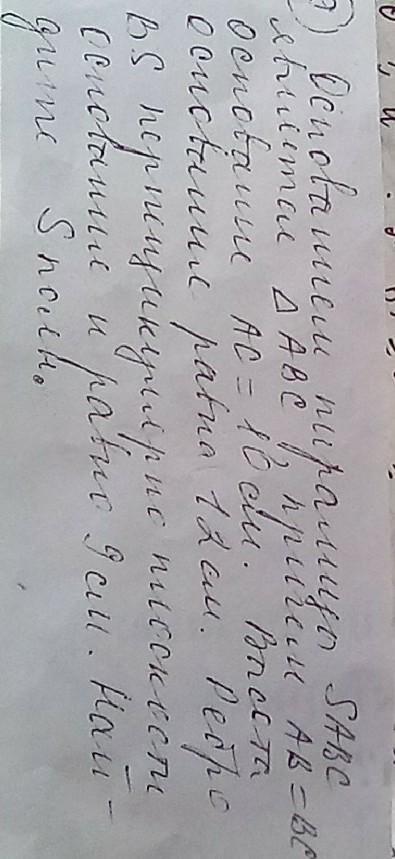 7) Основанием пирамиды SABC
является △ABC причем AB=BC
основание AC=16 см. Высота
основание равна 12 см. Ребро
BS перпендикулярно плоскости
основание и равно 9 см. Най-
дите S полн.